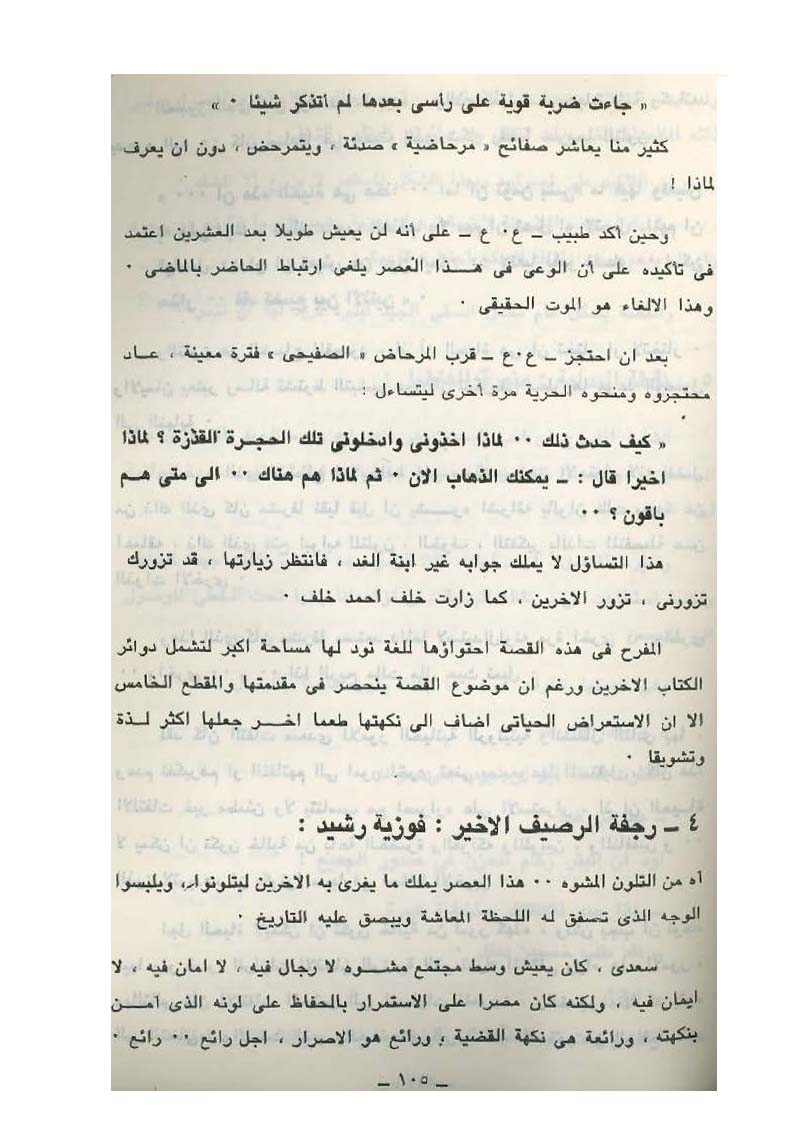 « جاءت ضربة قوية على رأسى بعدها لم أتذكر شيئا ٠ »
كثير منا يعاشر صفائح « مرحاضية » صدئة ، ويتمرحض ، دون ان يعرف
لماذا !
وحين أكد طبيب ــ ع٠ ع ــ على أنه لن يعيش طويلا بعد العشرين اعتمد
فى تأكيده على أن الوعى فى هــذا العصر يلغى ارتباط الحاضر بالماضى ٠
وهذا الالغاء هو الموت الحقيقى ٠
بعد ان احتجز ــ ع٠ع ــ قرب المرحاض « الصفيحى » فترة معينة ، عــاد
محتجزوه ومنحوه الحرية مرة أخرى ليتساءل :
« كيف حدث ذلك ٠٠ لماذا اخذونى وادخلونى تلك الحجــرة القذرة ؟ لماذا
اخيرا قال : ــ يمكنك الذهاب الان ٠ ثم لماذا هم هناك ٠٠ الى متى هــم
باقون ؟ ٠٠
هذا التساؤل لا يملك جوابه غير ابنة الغد ، فانتظر زيارتها ، قد تزورك
تزورنى ، تزور الاخرين ، كما زارت خلف احمد خلف ٠
المفرح فى هذه القصة احتواؤها للغة نود لها مساحة اكبر لتشمل دوائر
الكتاب الاخرين ورغم ان موضوع القصة ينحصر فى مقدمتها والمقطع الخامس
الا ان الاستعراض الحياتى اضاف الى نكهتها طعما اخــر جعلها اكثر لــذة
وتشويقا ٠
٤ ــ رجفة الرصيف الاخير : فوزية رشيد :
آه من التلون المشوه ٠٠ هذا العصر يملك ما يغرى به الاخرين ليتلونوا، ويلبسوا
الوجه الذى تصفق له اللحظة المعاشة ويبصق عليه التاريخ ٠
سعدى ، كان يعيش وسط مجتمع مشــوه لا رجال فيه ، لا امان فيه ، لا
ايمان فيه ، ولكنه كان مصرا على الاستمرار بالحفاظ على لونه الذى آمــن
بنكهته ، ورائعة هى نكهة القضية ، ورائع هو الاصرار ، اجل رائع ٠٠ رائع ٠
ــ ١٠٥ ــ